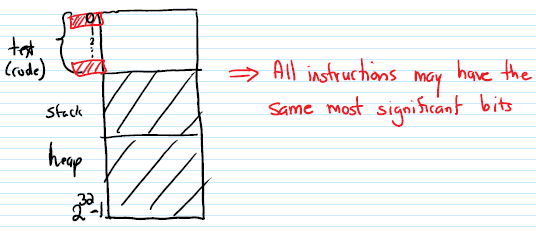 0
1
2
text
(code)
stack
heap
2^32-1
⇒ All instructions may have the
same most significant bits